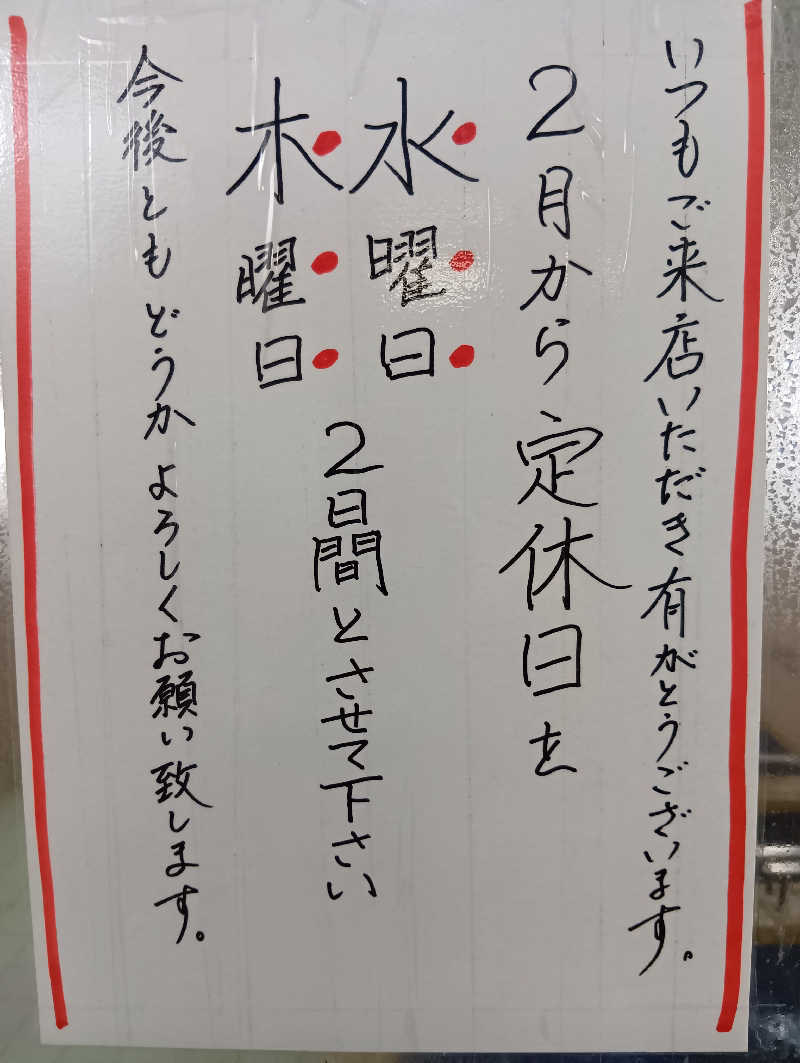 いつもご来店いただき有がとうございます。
2月から定休日を
水曜日
木曜日
2日間とさせて下さい
今後ともどうかよろしくお願い致します。